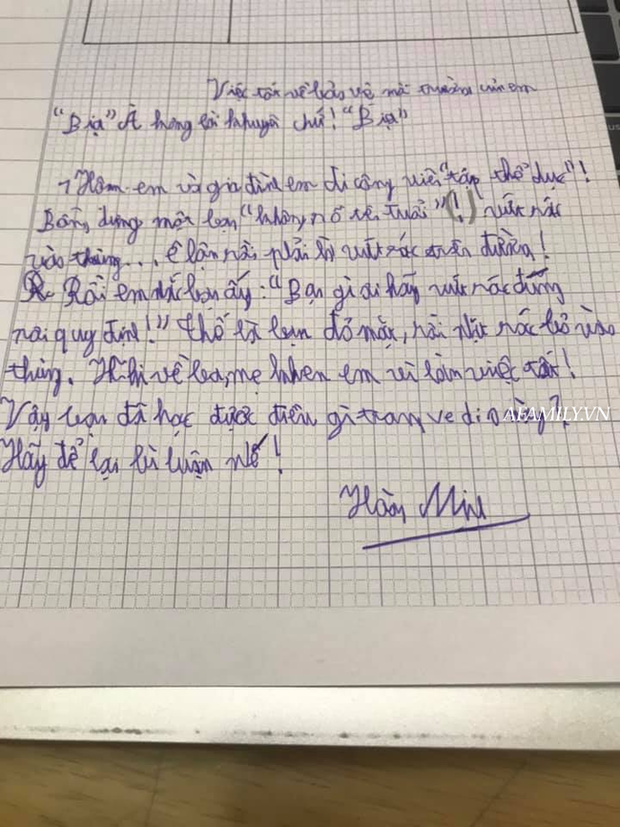 Việc tốt về bảo vệ môi trường của em
"Bịa" À không lời khuyên chứ! "Bịa"
Hôm em và gia đình em đi công viên "tập thể dục"!
Bỗng dưng một bạn "không rõ về tuổi" (!) vứt rác
vào thùng... ê lộn rồi phải là vứt rác trên đường!
Rồi em nhắc bạn ấy: "Bạn gì ơi hãy vứt rác đúng
nơi quy định!" thế là bạn đỏ mặt, rồi nhặt rác bỏ vào
thùng. Khi về ba, mẹ khen em vì làm việc tốt!
Vậy bạn đã học được điều gì trong video này?
AFAMILY.VN
Hãy để lại bình luận nhé!
Hoàng Minh